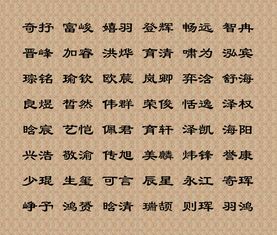 奇抒 富峻 嬉羽 登辉 畅远 智冉
晋峰 加睿 洪烨 育清 啸为 泓宾
琮铭 瑜钦 欧蕽 岚卿 弈浛 舒海
良煜 哲然 伟群 荣俊 恬逸 泽权
晗宸 艺恺 佩君 育轩 泽凯 海阳
兴浩 敬渝 传旭 美麟 炜锋 誉康
少琨 生玺 可言 辰星 永江 寄珲
峥予 鸿赟 晗清 瑞颉 则珲 羽鸿